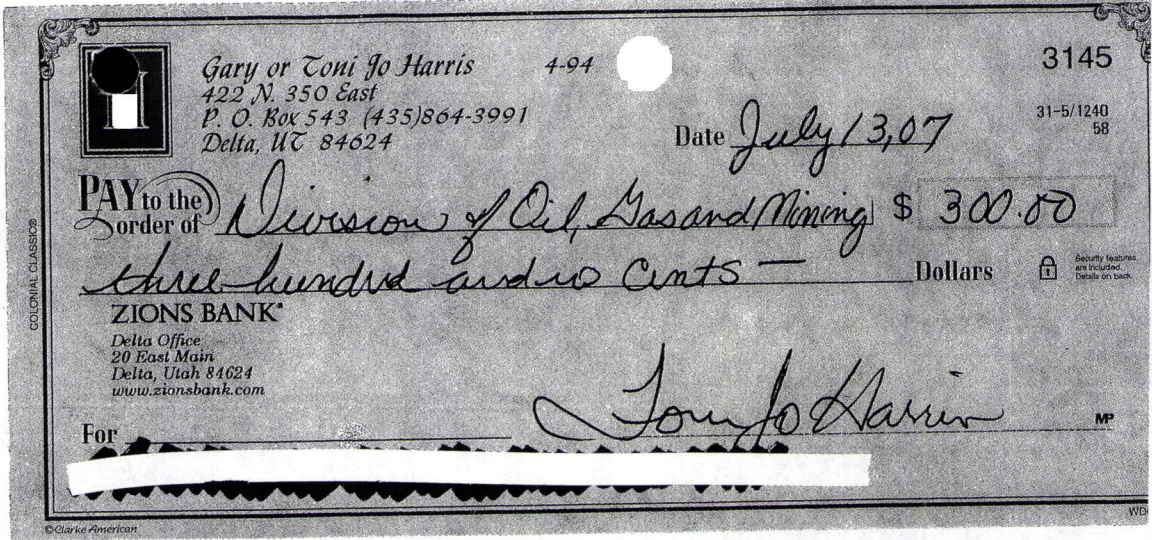 Gary or Toni Jo Harris 4-94
3145
422 N. 350 East
P. O. Box 543 (435)864-3991
Delta, UT 84624
31-5/1240
58
Date July 13, 07
PAY to the
order of Division of Oil, Gas and Mining $ 300.00
three hundred and no cents — Dollars
Security features
are included.
Details on back.
ZIONS BANK
Delta Office
20 East Main
Delta, Utah 84624
www.zionsbank.com
Toni Jo Harris
MP
For
COLONIAL CLASSIC®
©Clarke American
WD